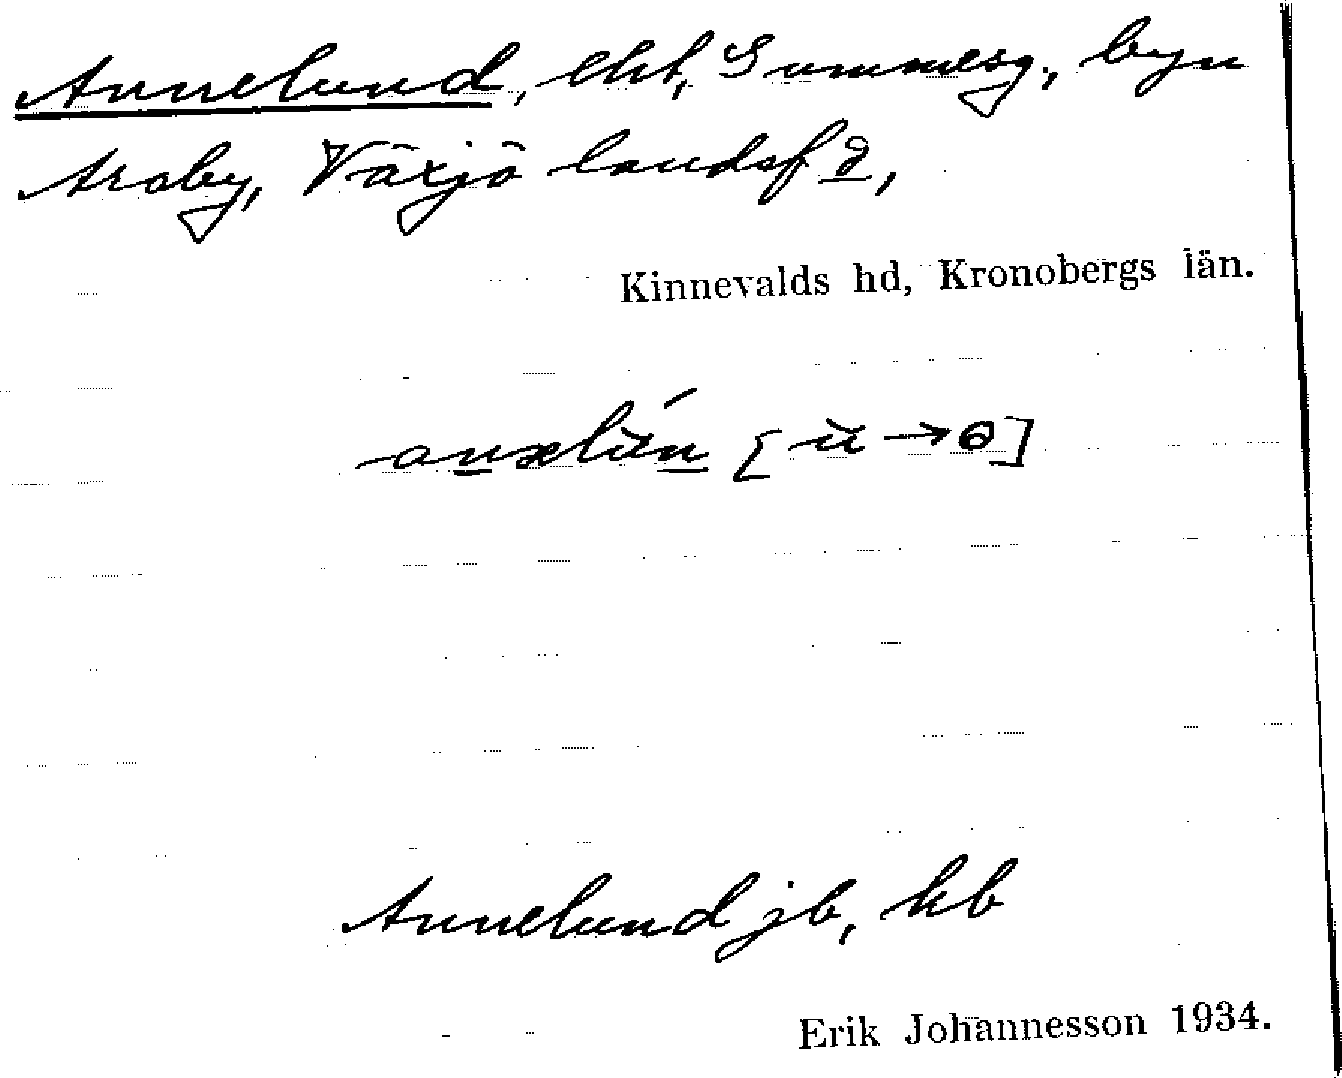 Annelund, lht, Gummesg, byn
Araby, Växjö landsf d,
Kinnevalds hd, Kronobergs län.
Annelund jb, kb
Erik Johannesson 1934.